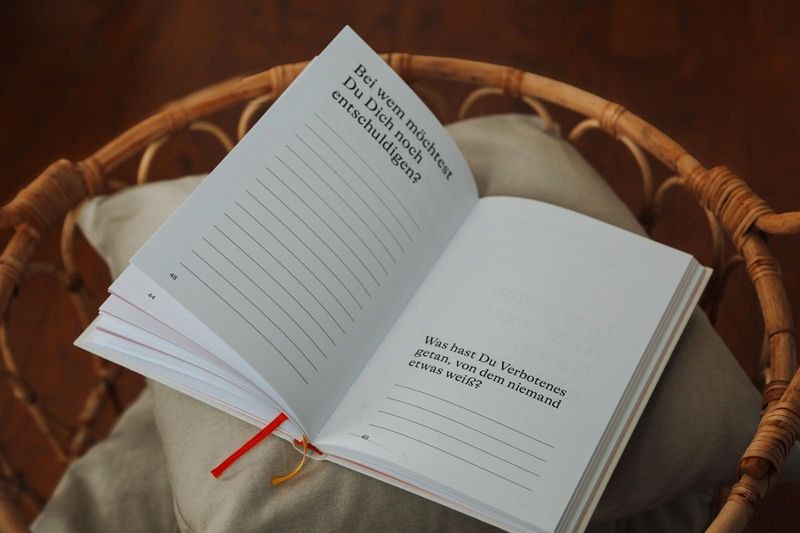 Bei wem möchtest
Du Dich noch
entschuldigen?
48
44
Was hast Du Verbotenes
getan, von dem niemand
etwas weiß?
49